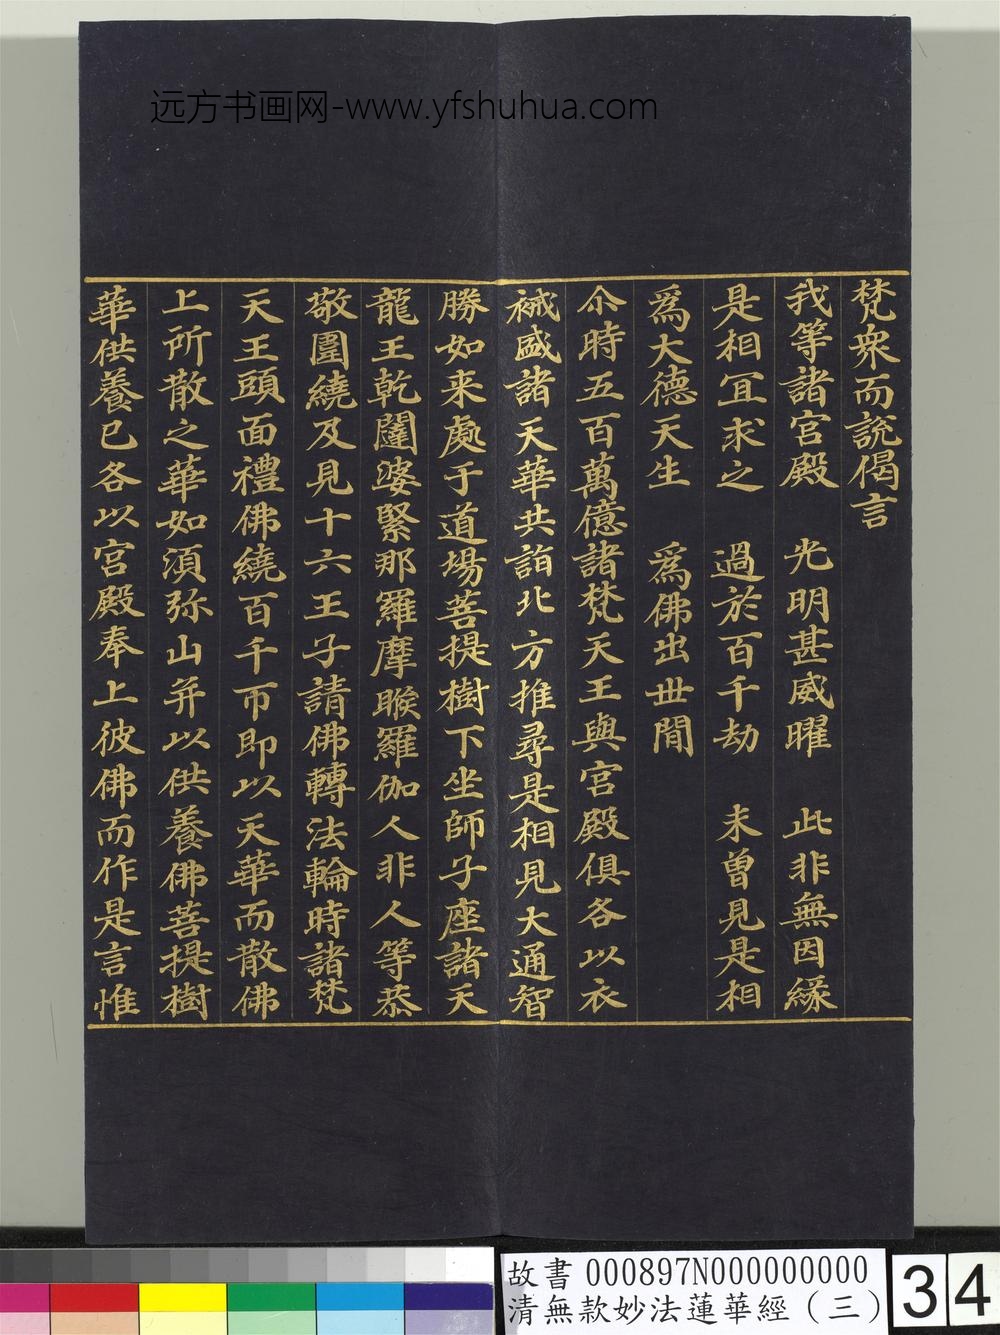 远方书画网-www.yfshuhua.com
梵衆而說偈言
我等諸宮殿 光明甚威曜 此非無因緣
是相冝求之 過於百千劫 未曾見是相
爲大德天生 爲佛出世間
尒時五百萬億諸梵天王與宮殿俱各以衣
祴盛諸天華共詣北方推尋是相見大通智
勝如来處于道場菩提樹下坐師子座諸天
龍王乾闥婆緊那羅摩睺羅伽人非人等恭
敬圍繞及見十六王子請佛轉法輪時諸梵
天王頭面禮佛繞百千帀即以天華而散佛
上所散之華如湏弥山并以供養佛菩提樹
華供養已各以宮殿奉上彼佛而作是言惟
故書 000897N000000000
清無款妙法蓮華經（三）
34